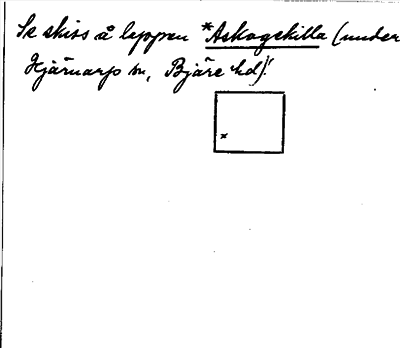 Se skiss å lappen *Askagskilla (under
Hjärnarp sn, Bjäre hd)!
x